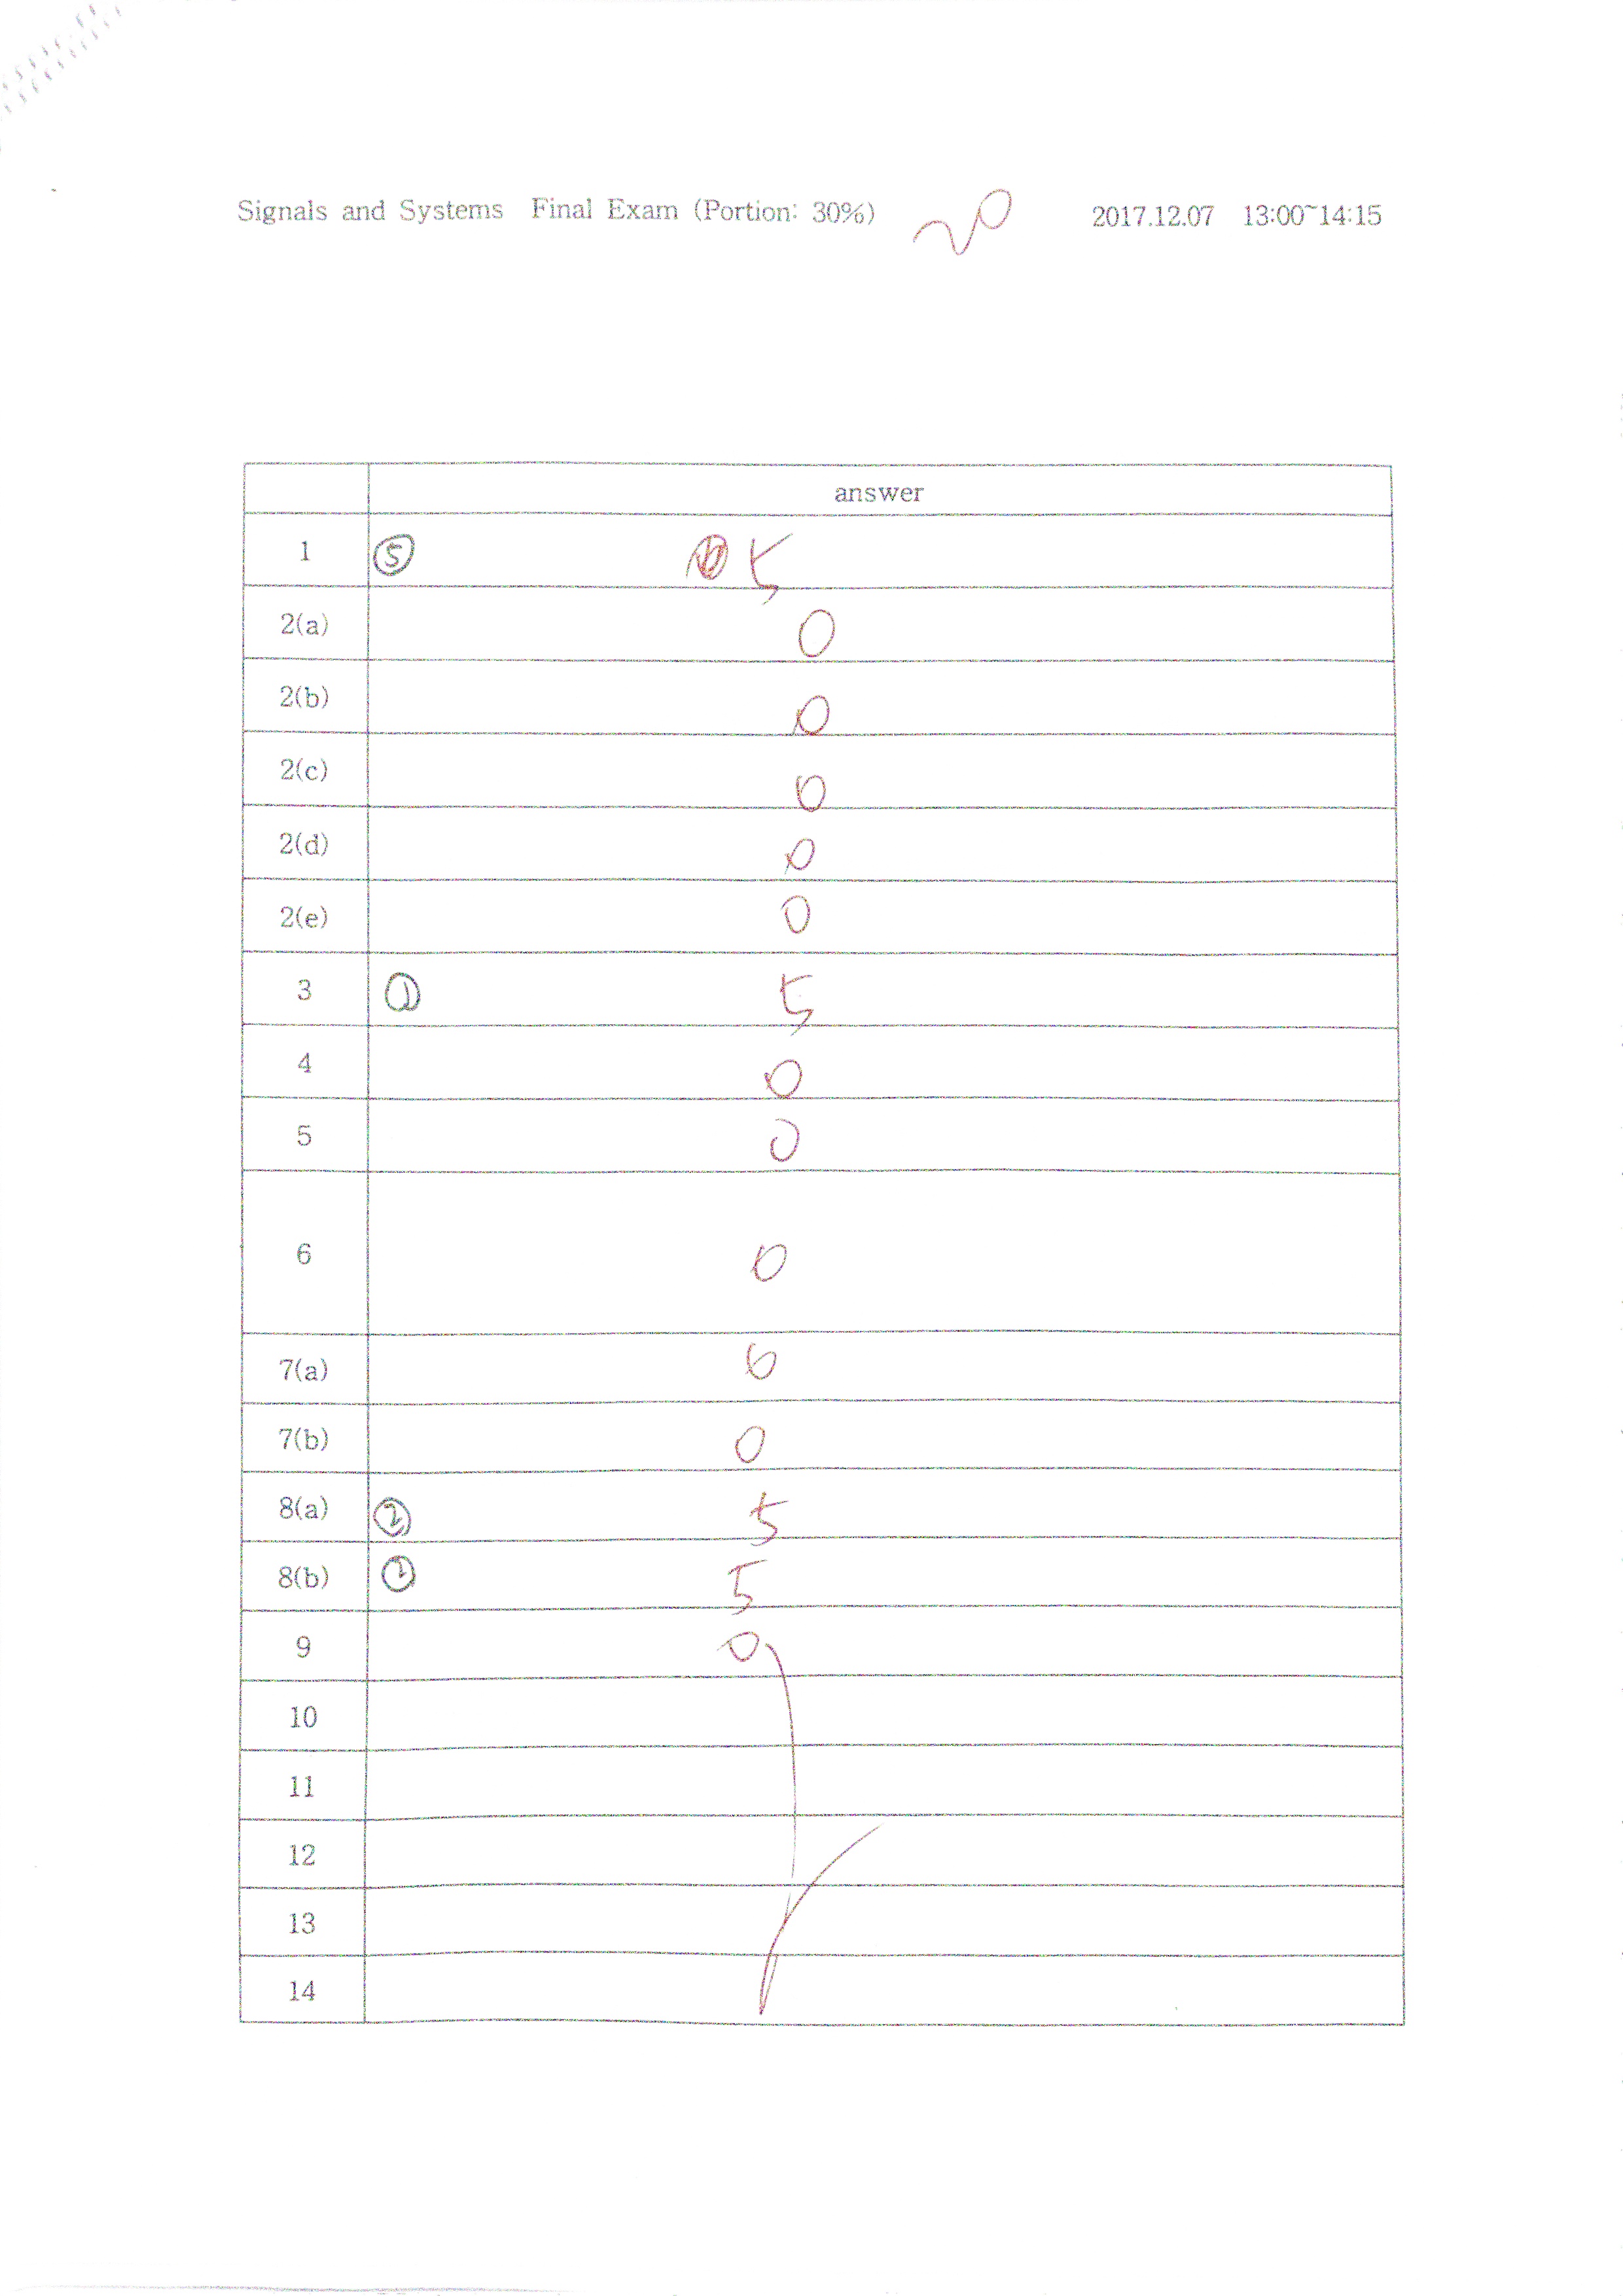 Signals and Systems Final Exam (Portion: 30%) 20 2017.12.07 13:00~14:15
answer
1 ⑤ 5
2(a) 0
2(b) 0
2(c) 0
2(d) 0
2(e) 0
3 ① 5
4 0
5 0
6 0
7(a) 0
7(b) 0
8(a) ② 5
8(b) 5
9 0
10
11
12
13
14